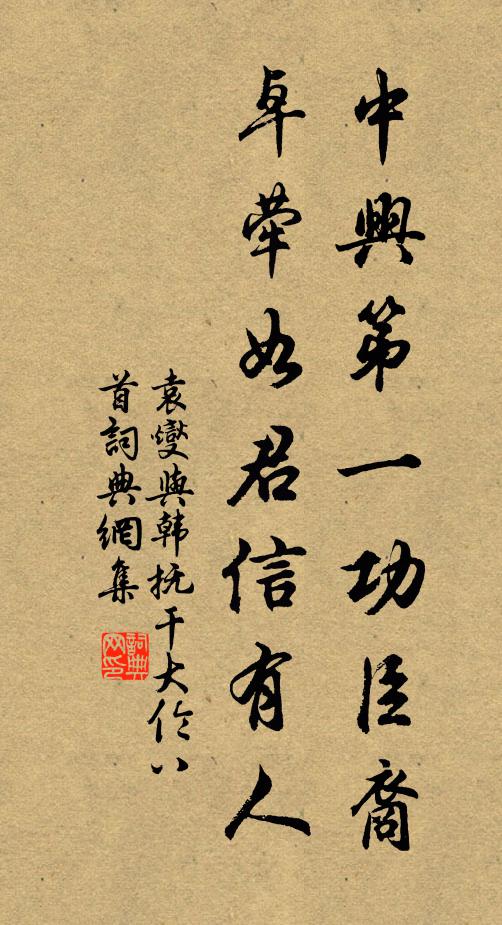 中興第一功臣裔
卓犖如君信有人
袁燮與韓撫干大伦八
首詞典網集
詞典
网印